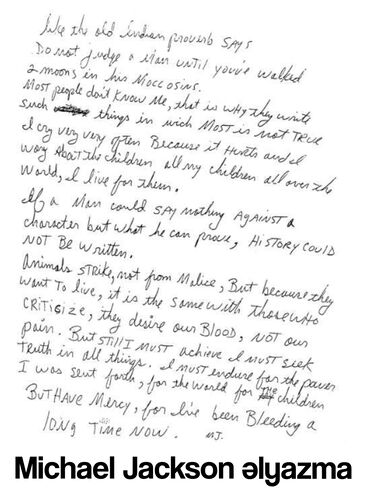 like the old Indian proverb SAYS
Do not judge a Man until you've walked
2 moons in his Moccosins.
Most people don't know Me, that is WHY they write
such things in wich MOST is not TRUE
I cry very very often Because it Hurts and I
wory About the children all my children all over the
World, I live for them.
If a Man could SAY nothing AGAINST a
character but what he can prove, HISTORY COULD
NOT Be written.
Animals STRIKE, not from Malice, But because they
want To live, it is the same with those WHO
CRITISIZE, they desire our BLOOD, NOT our
pain. But STILL I MUST achieve I MUST seek
Truth in all things. I MUST endure for the power
I was sent forth, for the world for the children
BUT HAVE Mercy, for I've been Bleeding a
long Time Now. MJ.
Michael Jackson əlyazma